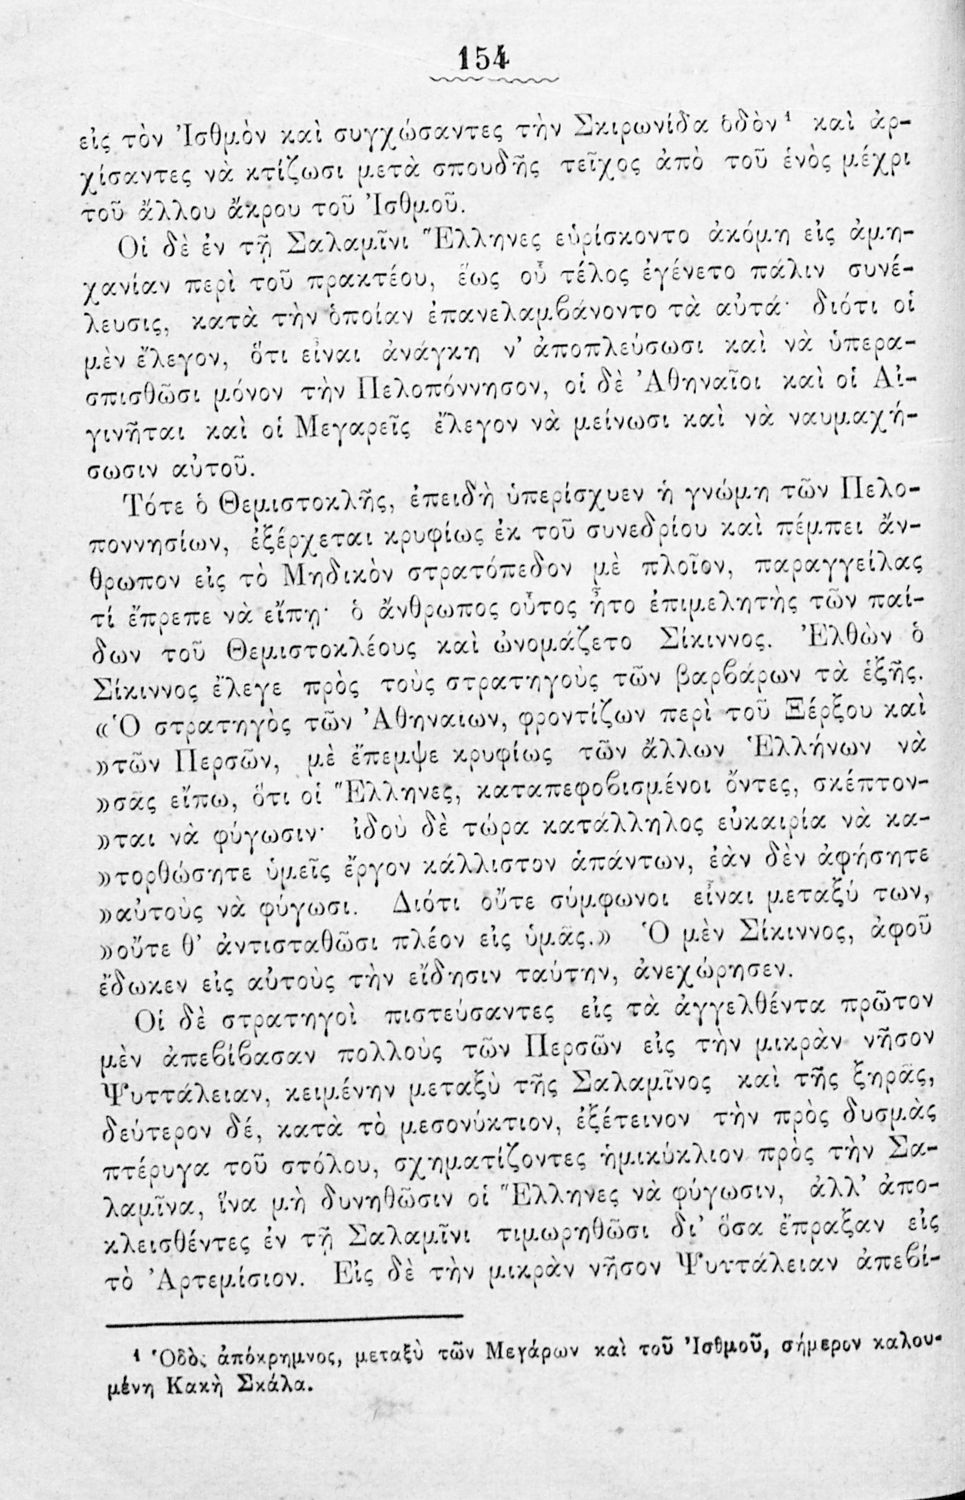 154
εἰς τὸν Ἰσθμὸν καὶ συγχώσαντες τὴν Σκιρωνίδα ὁδὸν¹ καὶ ἀρ-
χίσαντες νὰ κτίζωσι μετὰ σπουδῆς τεῖχος ἀπὸ τοῦ ἑνὸς μέχρι
τοῦ ἄλλου ἄκρου τοῦ Ἰσθμοῦ.
Οἱ δὲ ἐν τῇ Σαλαμῖνι Ἕλληνες εὑρίσκοντο ἀκόμη εἰς ἀμη-
χανίαν περὶ τοῦ πρακτέου, ἕως οὗ τέλος ἐγένετο πάλιν συνέ-
λευσις, κατὰ τὴν ὁποίαν ἐπανελαμβάνοντο τὰ αὐτά· διότι οἱ
μὲν ἔλεγον, ὅτι εἶναι ἀνάγκη ν' ἀποπλεύσωσι καὶ νὰ ὑπερα-
σπισθῶσι μόνον τὴν Πελοπόννησον, οἱ δὲ Ἀθηναῖοι καὶ οἱ Αἰ-
γινῆται καὶ οἱ Μεγαρεῖς ἔλεγον νὰ μείνωσι καὶ νὰ ναυμαχή-
σωσιν αὐτοῦ.
Τότε ὁ Θεμιστοκλῆς, ἐπειδὴ ὑπερίσχυεν ἡ γνώμη τῶν Πελο-
ποννησίων, ἐξέρχεται κρυφίως ἐκ τοῦ συνεδρίου καὶ πέμπει ἄν-
θρωπον εἰς τὸ Μηδικὸν στρατόπεδον μὲ πλοῖον, παραγγείλας
τί ἔπρεπε νὰ εἴπῃ· ὁ ἄνθρωπος οὗτος ἦτο ἐπιμελητὴς τῶν παί-
δων τοῦ Θεμιστοκλέους καὶ ὠνομάζετο Σίκιννος. Ἐλθὼν ὁ
Σίκιννος ἔλεγε πρὸς τοὺς στρατηγοὺς τῶν βαρβάρων τὰ ἑξῆς.
«Ὁ στρατηγὸς τῶν Ἀθηναίων, φροντίζων περὶ τοῦ Ξέρξου καὶ
»τῶν Περσῶν, μὲ ἔπεμψε κρυφίως τῶν ἄλλων Ἑλλήνων νὰ
»σᾶς εἴπω, ὅτι οἱ Ἕλληνες, καταπεφοβισμένοι ὄντες, σκέπτον-
»ται νὰ φύγωσιν· ἰδοὺ δὲ τώρα κατάλληλος εὐκαιρία νὰ κα-
»τορθώσητε ὑμεῖς ἔργον κάλλιστον ἁπάντων, ἐὰν δὲν ἀφήσητε
»αὐτοὺς νὰ φύγωσι. Διότι οὔτε σύμφωνοι εἶναι μεταξύ των,
»οὔτε θ' ἀντισταθῶσι πλέον εἰς ὑμᾶς.» Ὁ μὲν Σίκιννος, ἀφοῦ
ἔδωκεν εἰς αὐτοὺς τὴν εἴδησιν ταύτην, ἀνεχώρησεν.
Οἱ δὲ στρατηγοὶ πιστεύσαντες εἰς τὰ ἀγγελθέντα πρῶτον
μὲν ἀπεβίβασαν πολλοὺς τῶν Περσῶν εἰς τὴν μικρὰν νῆσον
Ψυττάλειαν, κειμένην μεταξὺ τῆς Σαλαμῖνος καὶ τῆς ξηρᾶς,
δεύτερον δέ, κατὰ τὸ μεσονύκτιον, ἐξέτεινον τὴν πρὸς δυσμὰς
πτέρυγα τοῦ στόλου, σχηματίζοντες ἡμικύκλιον πρὸς τὴν Σα-
λαμῖνα, ἵνα μὴ δυνηθῶσιν οἱ Ἕλληνες νὰ φύγωσιν, ἀλλ' ἀπο-
κλεισθέντες ἐν τῇ Σαλαμῖνι τιμωρηθῶσι δι' ὅσα ἔπραξαν εἰς
τὸ Ἀρτεμίσιον. Εἰς δὲ τὴν μικρὰν νῆσον Ψυττάλειαν ἀπεβί-
¹ Ὁδὸς ἀπόκρημνος, μεταξὺ τῶν Μεγάρων καὶ τοῦ Ἰσθμοῦ, σήμερον καλου-
μένη Κακὴ Σκάλα.